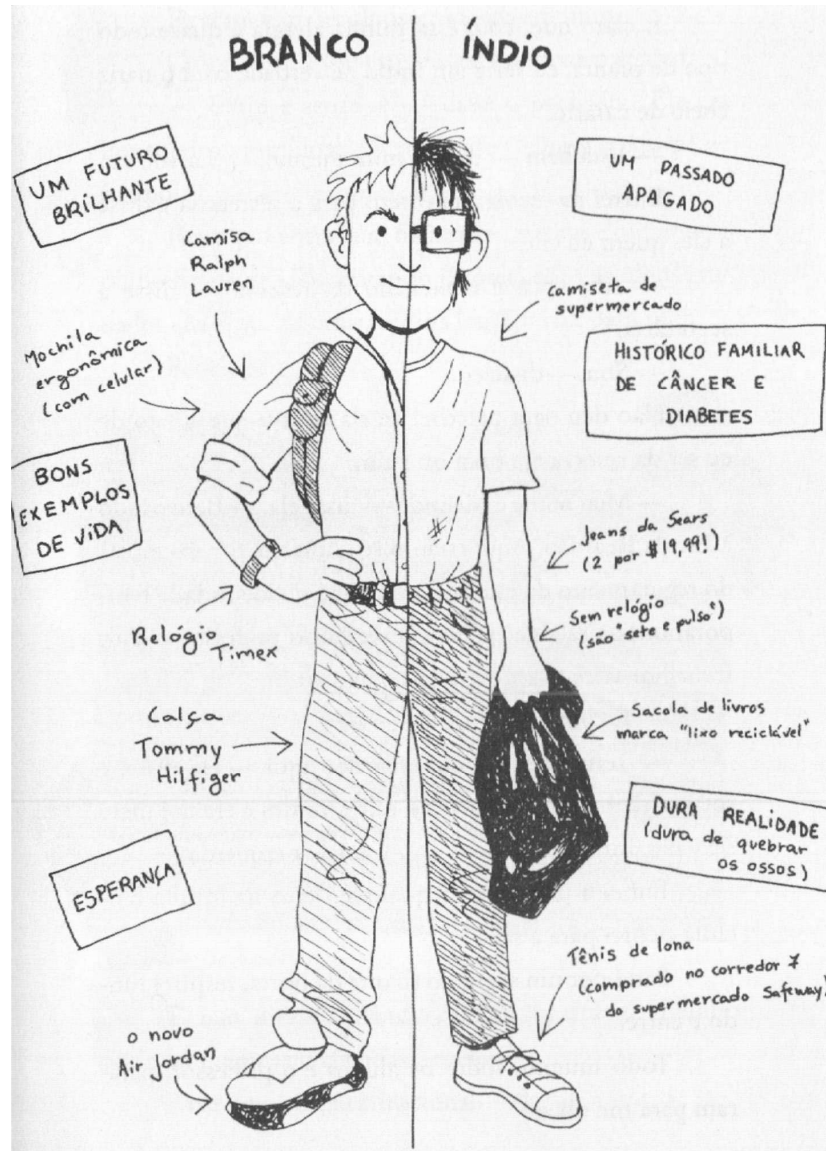 BRANCO
ÍNDIO
UM FUTURO
BRILHANTE
Camisa
Ralph
Lauren
Mochila
ergonômica
(com celular)
BONS
EXEMPLOS
DE VIDA
Relógio
Timex
Calça
Tommy
Hilfiger
ESPERANÇA
o novo
Air Jordan
UM PASSADO
APAGADO
camiseta de
supermercado
HISTÓRICO FAMILIAR
DE CÂNCER E
DIABETES
Jeans da Sears
(2 por $19,99!)
Sem relógio
(são "sete e pulso")
Sacola de livros
marca "lixo reciclável"
DURA REALIDADE
(dura de quebrar
os ossos)
Tênis de lona
(comprado no corredor 7
do supermercado Safeway!